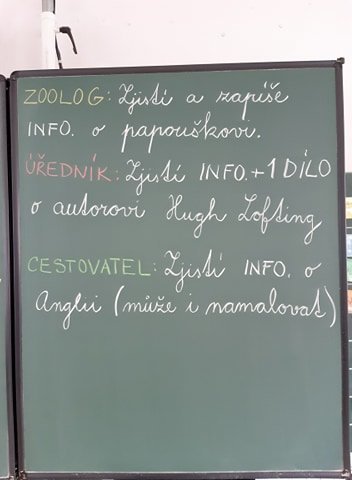 ZOOLOG: Zjistí a zapíše
INFO. o papouškovi.
ÚŘEDNÍK: Zjistí INFO.+1 DÍLO
o autorovi Hugh Lofting
CESTOVATEL: Zjistí INFO. o
Anglii (může i namalovat)